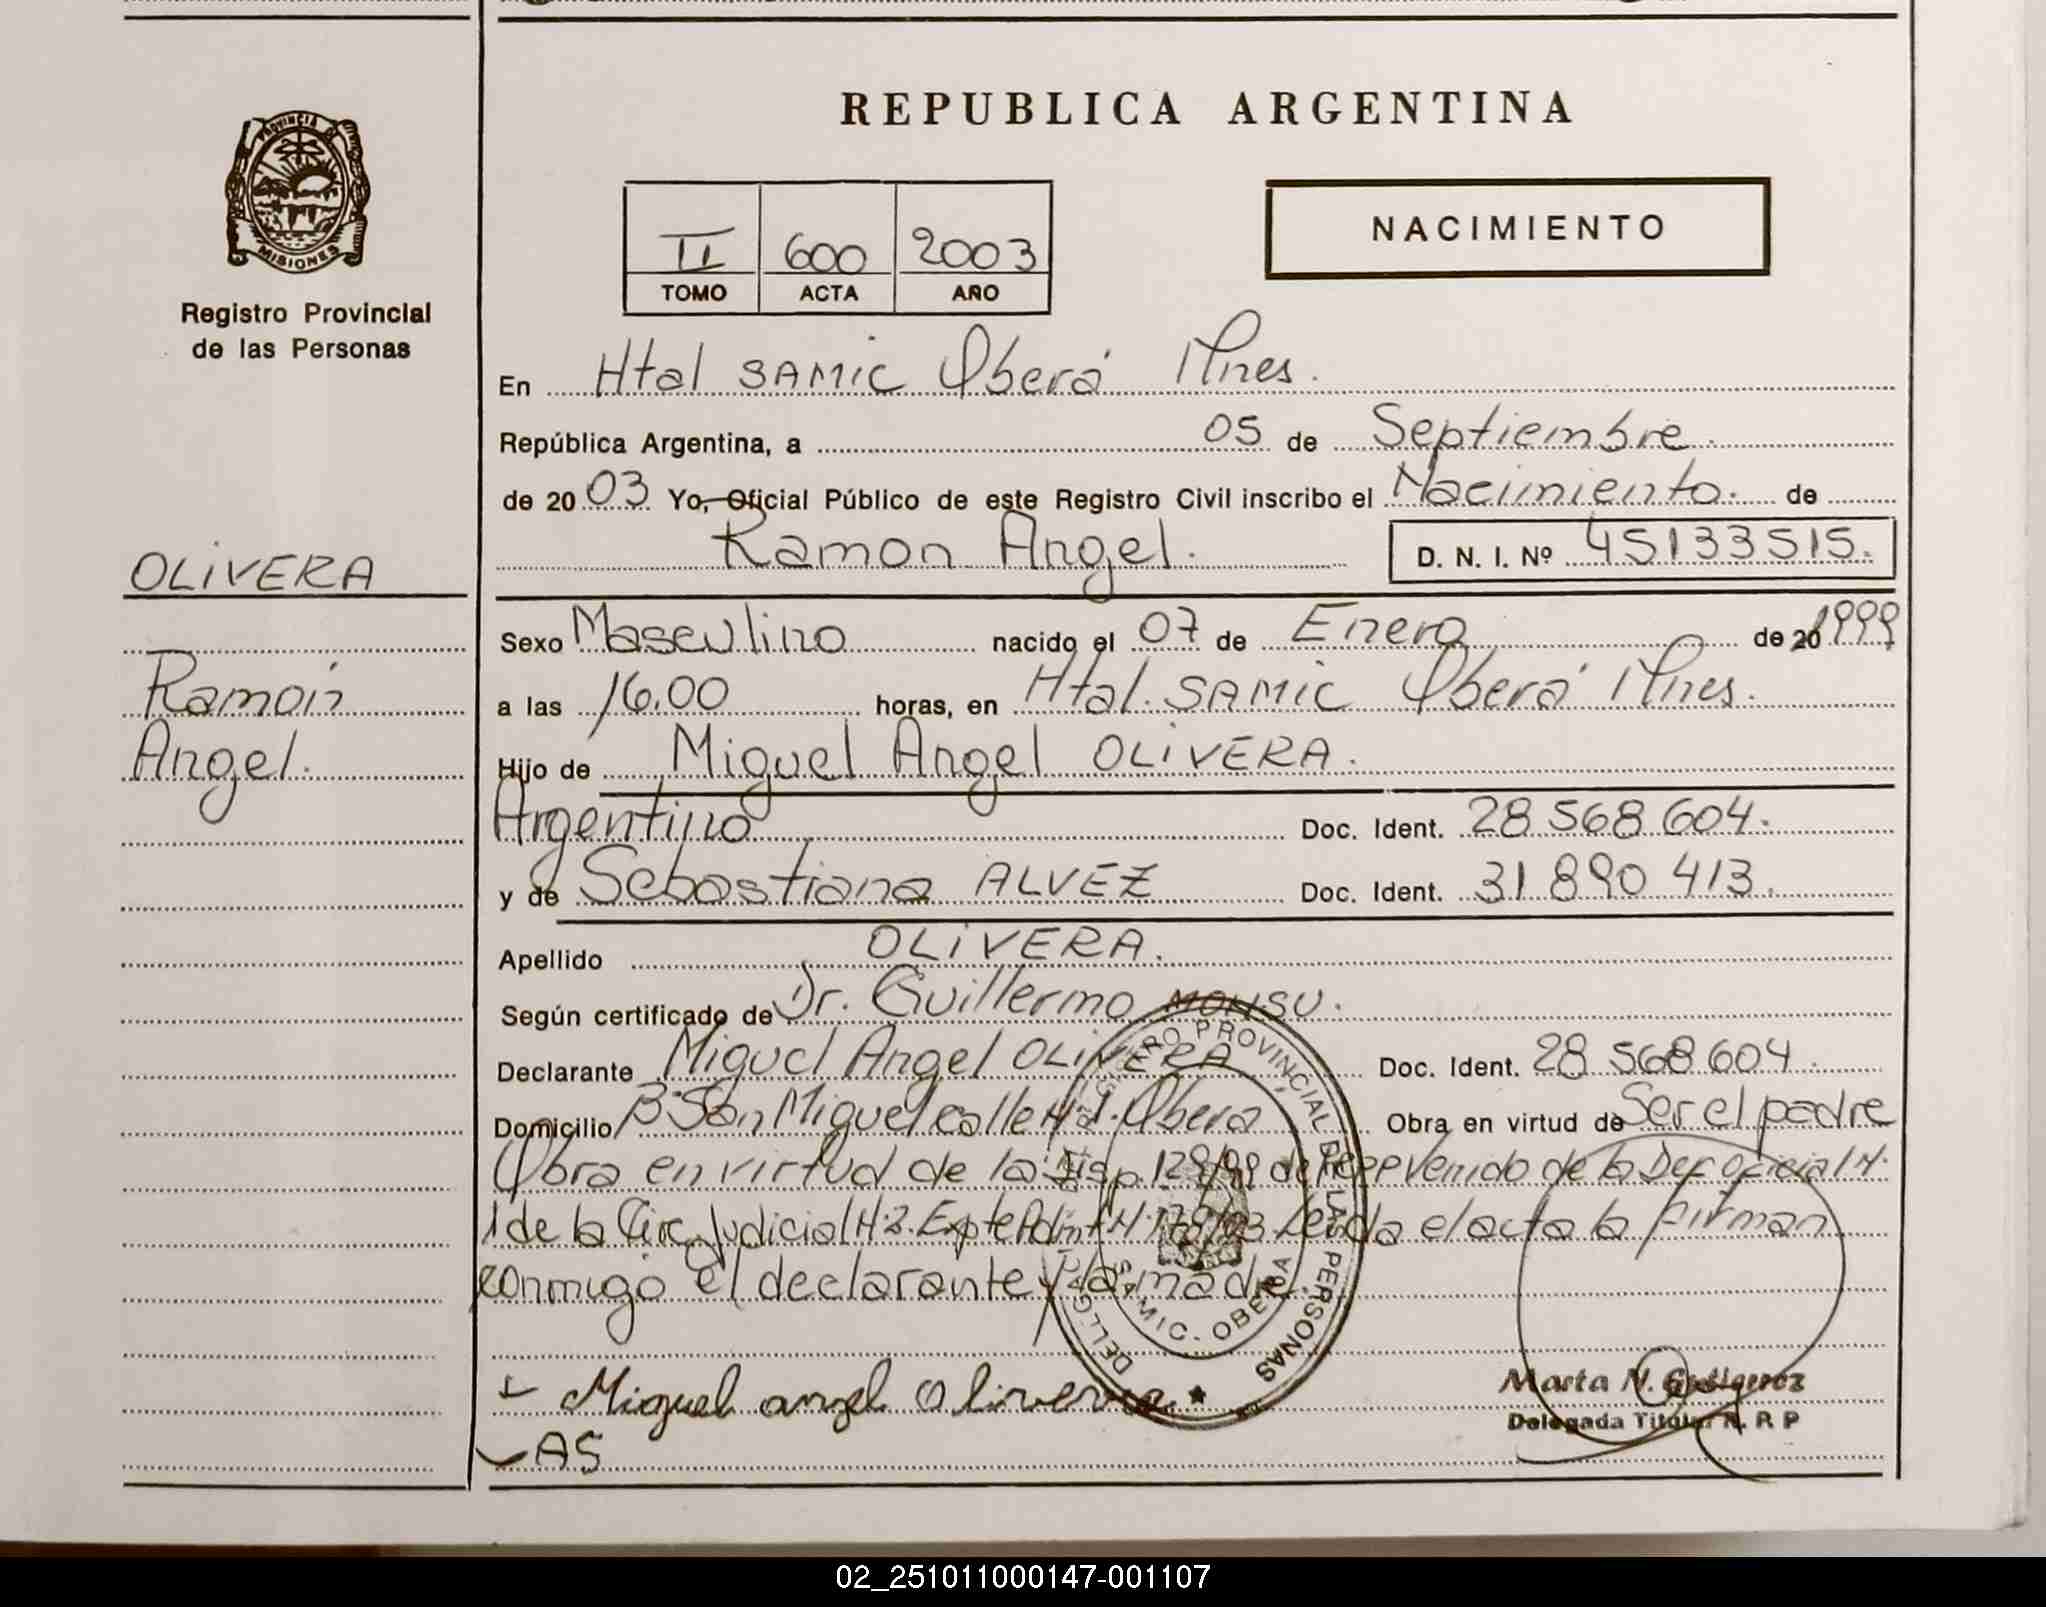 REPUBLICA ARGENTINA
PROVINCIA D
MISIONES
Registro Provincial
de las Personas
II 600 2003
TOMO ACTA AÑO
NACIMIENTO
En Htal SAMIC Oberá Mnes.
República Argentina, a 05 de Septiembre
de 2003 Yo, Oficial Público de este Registro Civil inscribo el Nacimiento de
Ramon Angel. D. N. I. Nº 45133515.
OLIVERA
Ramón
Angel.
Sexo Masculino nacido el 07 de Enero de 20 1999
a las 16.00 horas, en Htal. SAMIC Oberá Mnes.
Hijo de Miguel Angel OLIVERA.
Argentino Doc. Ident. 28 568 604.
y de Sebastiana ALVEZ Doc. Ident. 31 890 413.
Apellido OLIVERA.
Según certificado de Dr. Guillermo MONSU.
Declarante Miguel Angel OLIVERA Doc. Ident. 28 568 604.
Domicilio Bº San Miguel calle Oberá Obra en virtud de Ser el padre
Obra en virtud de la Disp. 128/99 del venido de la Def Oficial Nº
1 de la Circ. Judicial Nº 2. Expte Leída el acta la firman
conmigo el declarante y la madre.
Miguel angel Olivera
AS
REGISTRO PROVINCIAL DE LAS PERSONAS
SAMIC. OBERA
Marta N. Gutierrez
Delegada Titular R. P. P
02_251011000147-001107